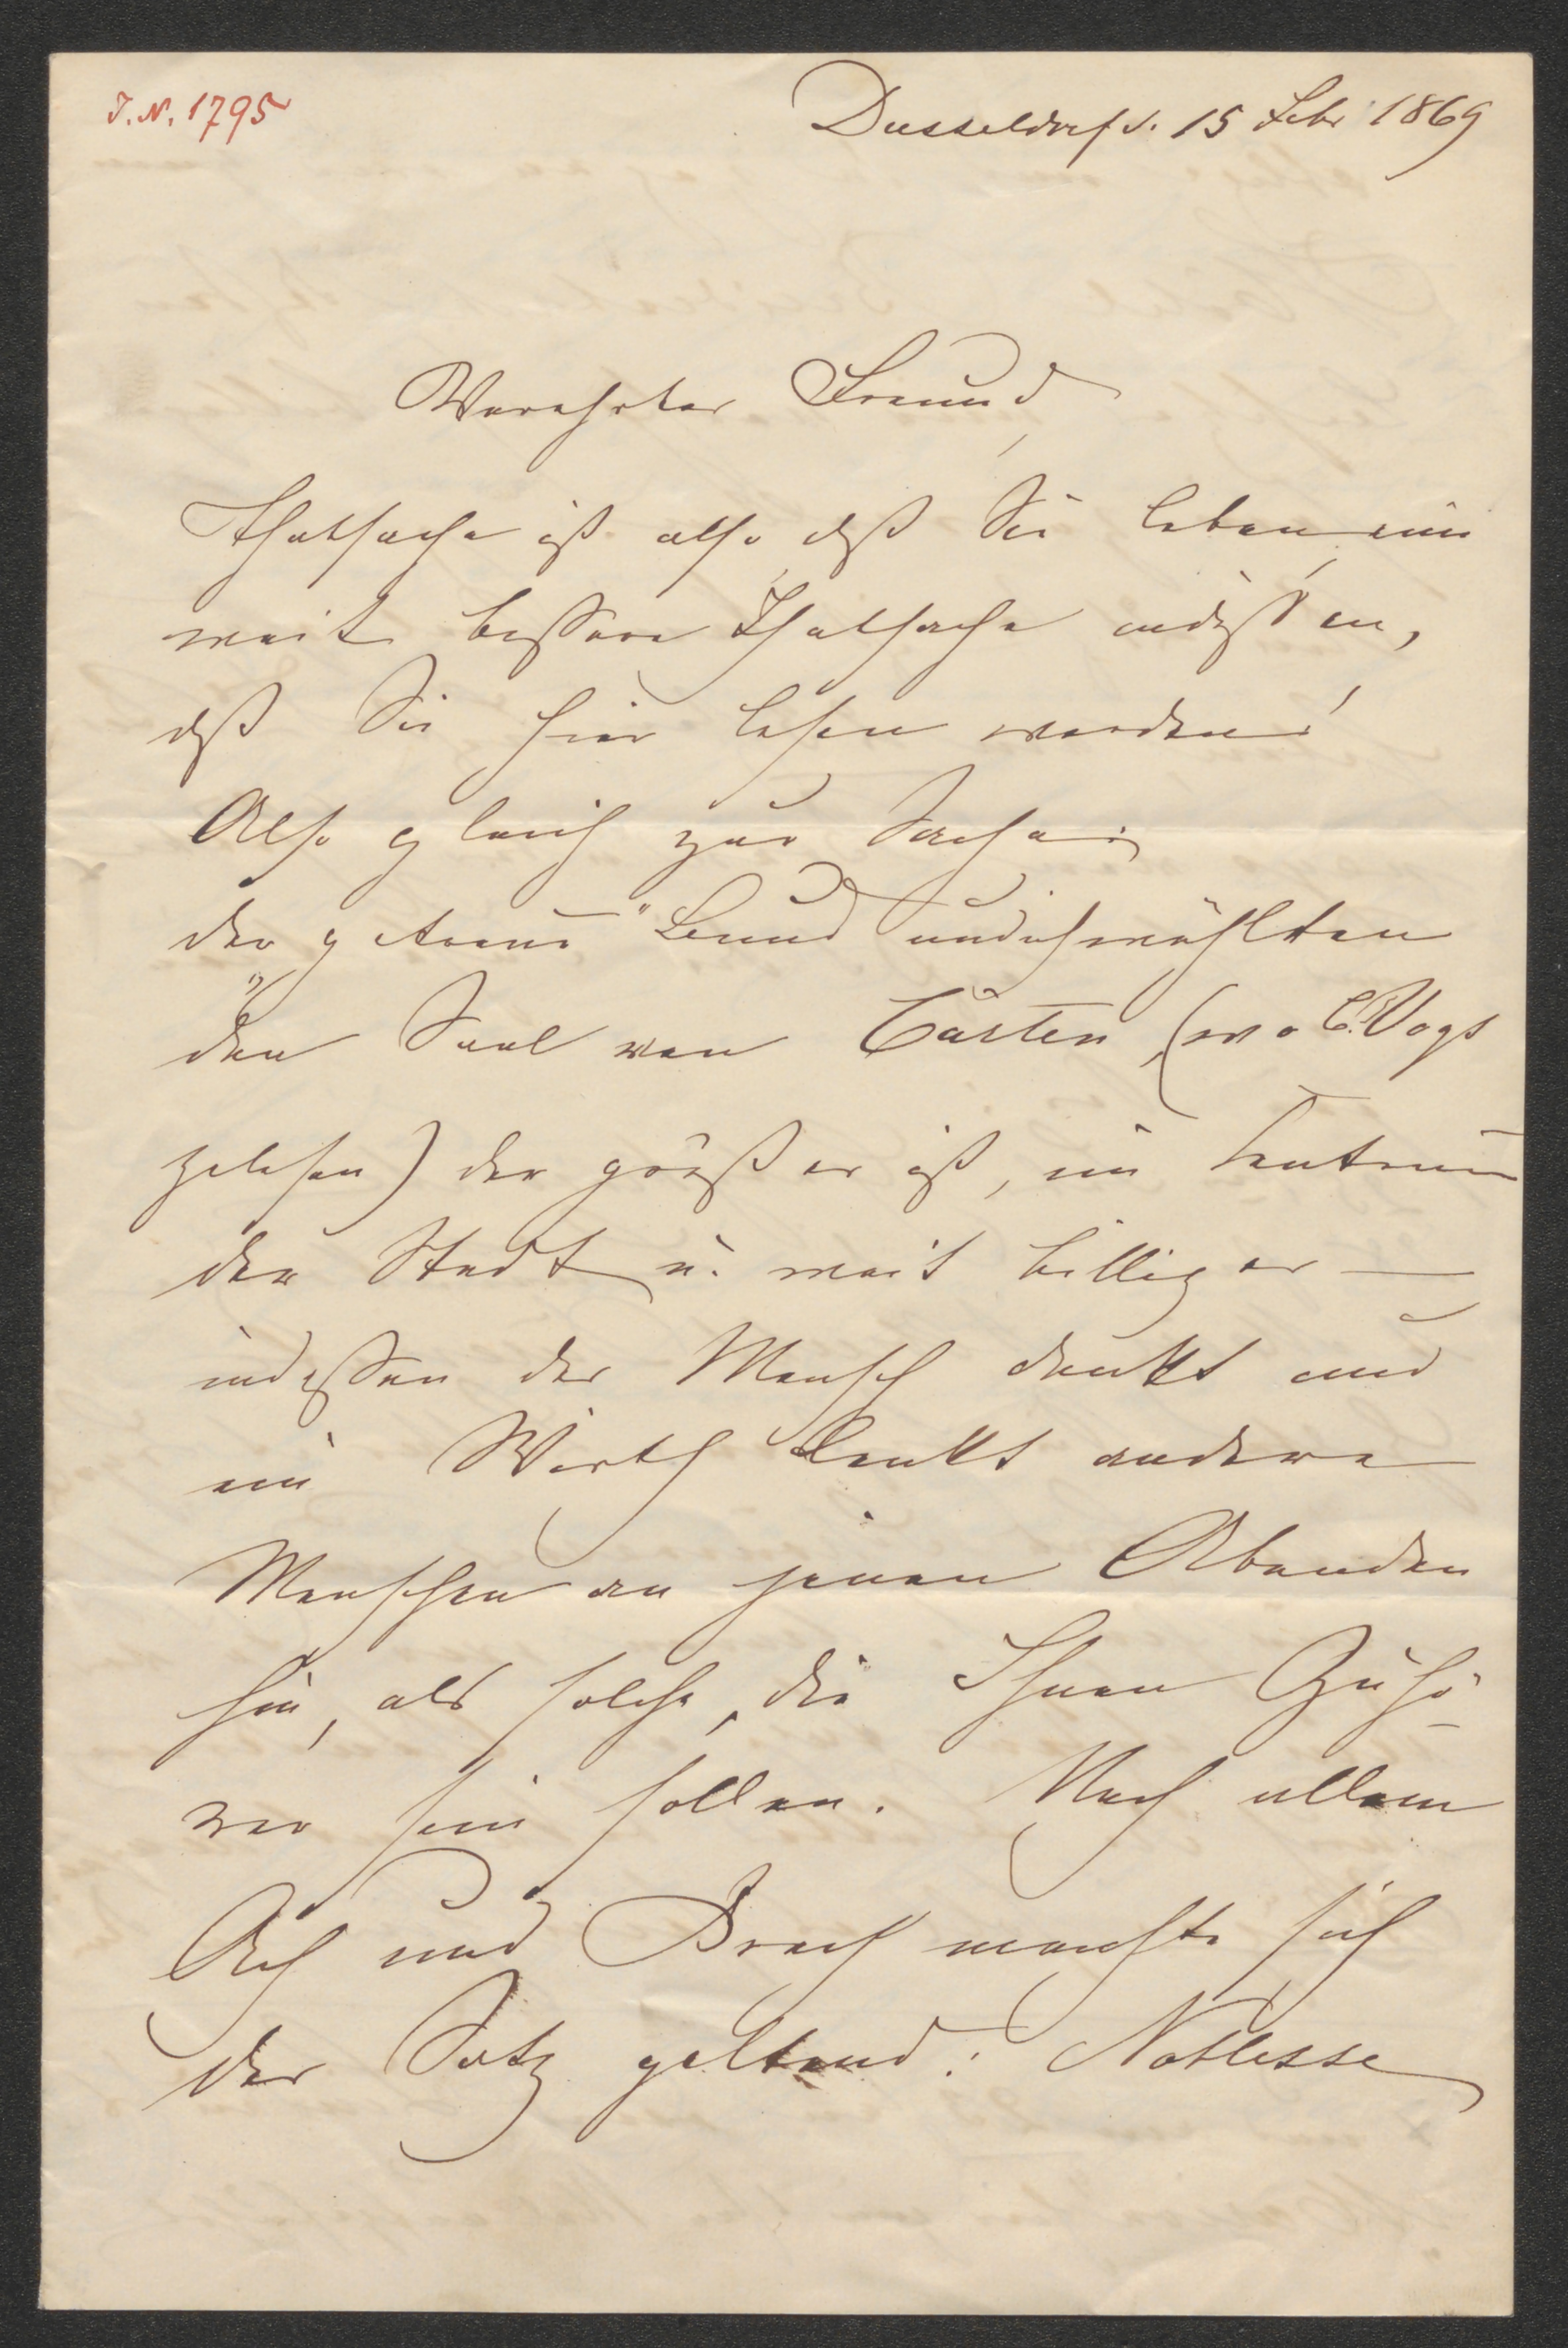 J. N. 1795
Düsseldorf d. 15 Febr 1869
Verehrter Freund,
Thatsache ist also, daß Sie leben, eine
weit bessere Thatsache indessen,
daß Sie hier lesen werden!
Also gleich zur Sache:
der getreue "Bund" und ich wählten
den Saal von Cürten, (wo C. Vogt
gelesen) der größer ist, im Centrum
der Stadt u. weit billiger —
indessen der Mensch denkt und
ein Wirth lenkt andere
Menschen an jenen Abenden
hin, als solche, die Ihnen Zuhö-
rer sein sollen. Nach allem
Ach und Krach machte sich
der Satz geltend: Noblesse